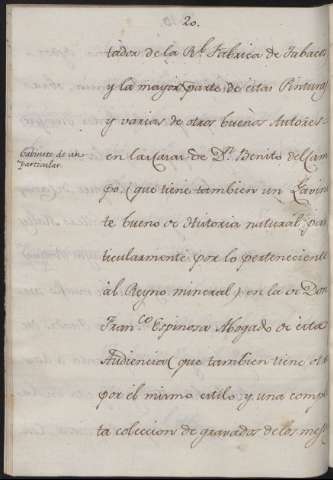 20.
tador de la Rl. Fabrica de Tabacos
y la mayor parte de estas Pinturas
y varias de otros buenos Autores
Gabinete de un
particular.
en la Casa de Dn. Benito del Cam
po (que tiene tambien un Gavine
te bueno de Historia natural, par
ticularmente por lo perteneciente
al Reyno mineral) en la de Don
Franco. Espinosa Abogado de esta
Audiencia (que tambien tiene otro
por el mismo estilo y una comple
ta coleccion de gravados de los mej